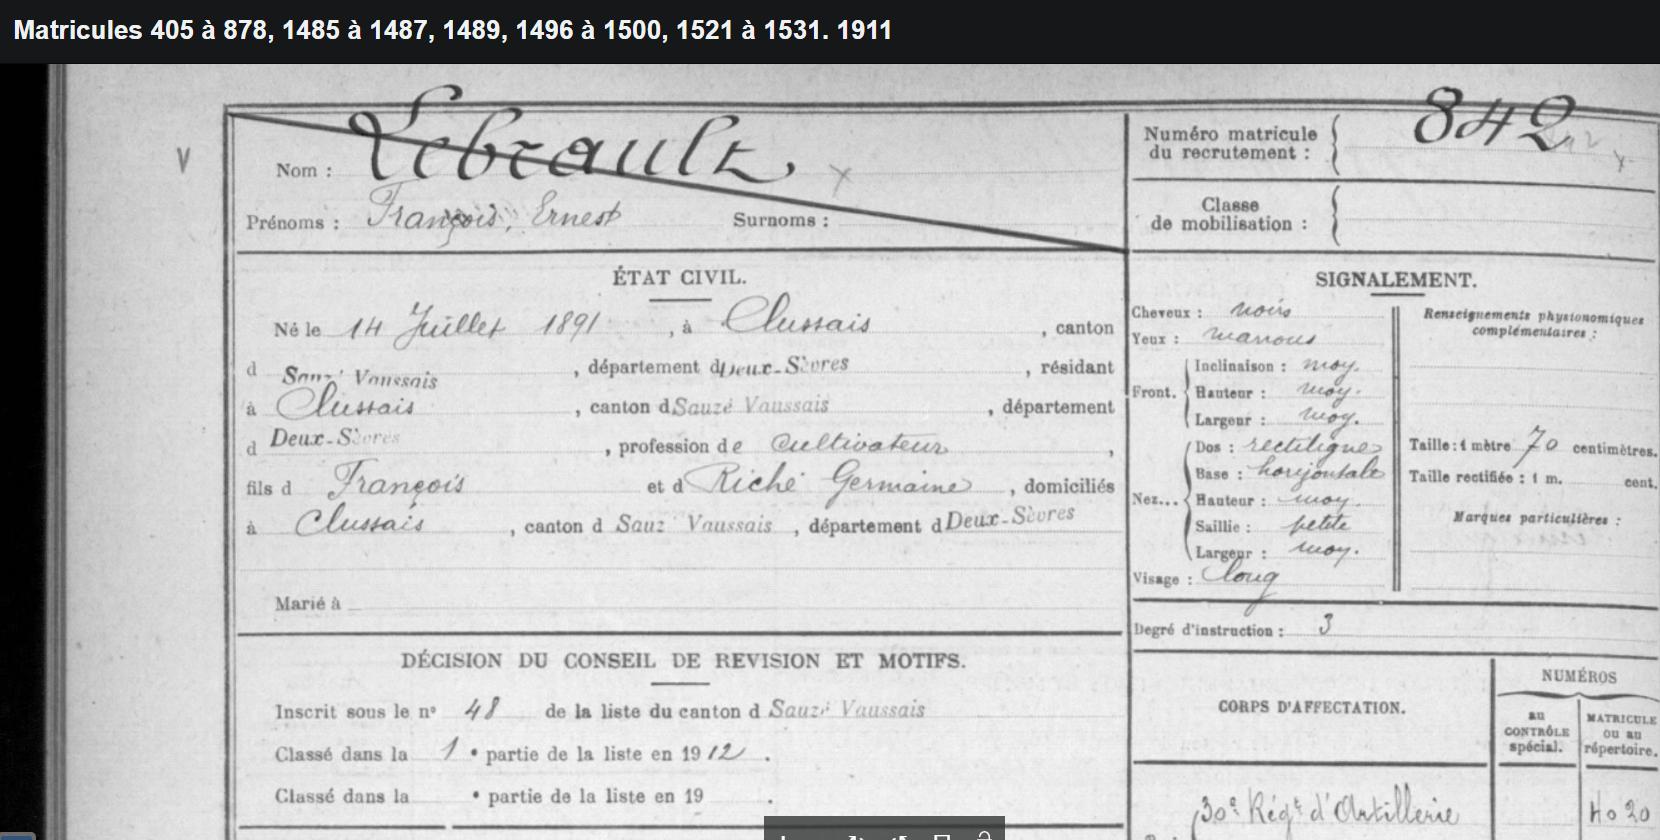 Matricules 405 à 878, 1485 à 1487, 1489, 1496 à 1500, 1521 à 1531. 1911
Nom : Lebrault,
Prénoms : François, Ernest Surnoms :
Numéro matricule du recrutement : 842
Classe de mobilisation :
ÉTAT CIVIL.
Né le 14 Juillet 1891, à Clussais, canton
d Sauzé Vaussais, département d Deux-Sèvres, résidant
à Clussais, canton d Sauzé Vaussais, département
d Deux-Sèvres, profession de cultivateur,
fils d François et d Riché Germaine, domiciliés
à Clussais, canton d Sauz Vaussais, département d Deux-Sèvres
Marié à
DÉCISION DU CONSEIL DE REVISION ET MOTIFS.
Inscrit sous le n° 48 de la liste du canton d Sauzé Vaussais
Classé dans la 1 e partie de la liste en 1912.
Classé dans la e partie de la liste en 19 .
SIGNALEMENT.
Cheveux : noirs
Yeux : marrons
Front. Inclinaison : moy.
Hauteur : moy.
Largeur : moy.
Nez... Dos : rectiligne
Base : horizontale
Hauteur : moy.
Saillie : petite
Largeur : moy.
Visage : long
Renseignements physionomiques
complémentaires :
Taille : 1 mètre 70 centimètres.
Taille rectifiée : 1 m. cent.
Marques particulières :
Degré d'instruction : 3
CORPS D'AFFECTATION.
NUMÉROS
au
CONTRÔLE
spécial.
MATRICULE
ou au
répertoire.
30e Régt d'Artillerie
4020